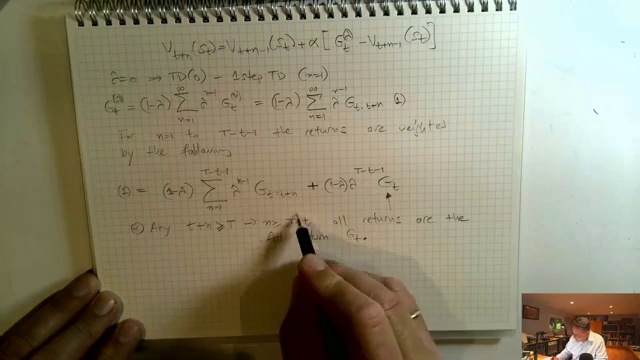 V_{t+n}(S_t) = V_{t+n-1}(S_t) + α [ G_t^λ − V_{t+n-1}(S_t) ]
λ=0 ⇒ TD(0) – 1 step TD (n=1)
G_t^{(λ)} = (1-λ) ∑_{n=1}^{∞} λ^{n-1} G_t^{(n)} = (1-λ) ∑_{n=1}^{∞} λ^{n-1} G_{t:t+n} (1)
For n=1 to T-t-1 the returns are weighted
by the following
(1) = (1-λ) ∑_{n=1}^{T-t-1} λ^{n-1} G_{t:t+n} + (1-λ) λ^{T-t-1} G_t
Any t+n ≥ T → n ≥ T-t all returns are the
G_t.